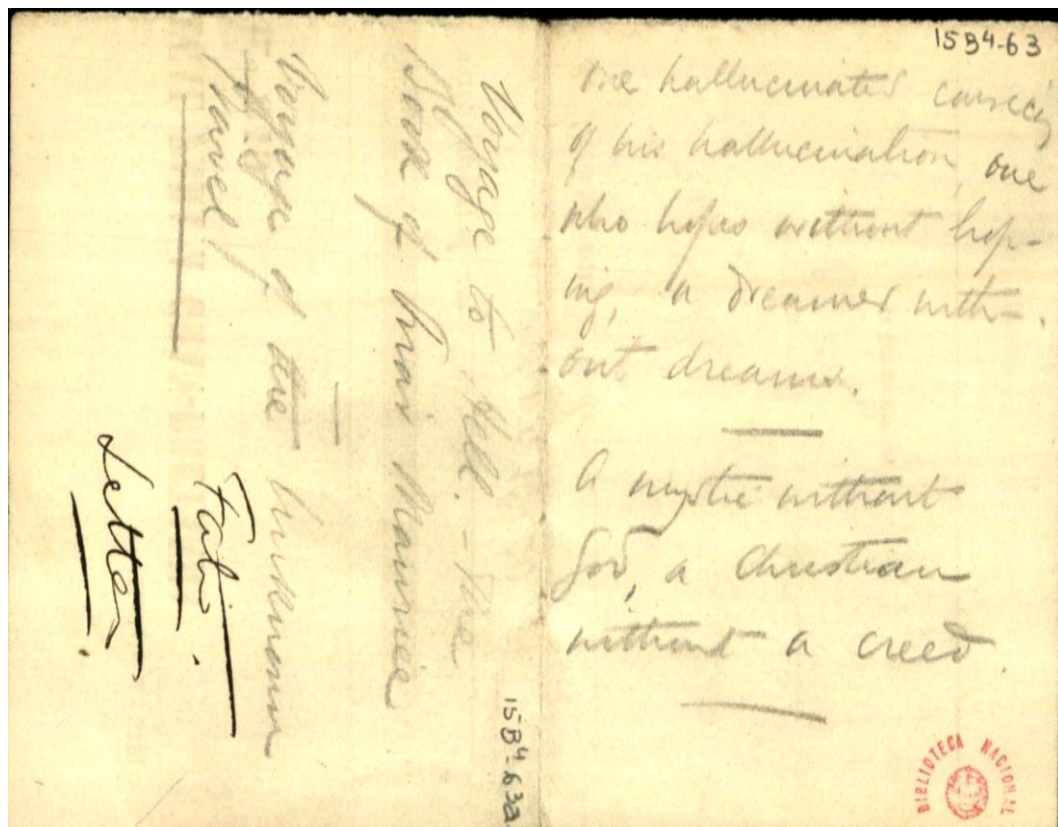 15B4-63
One hallucinated
of his hallucination, one
who hopes without hop-
ing, a dreamer with-
out dreams.
A mystic without
God, a Christian
without a creed.
BIBLIOTECA NACIONAL
Voyage to Hell. - The
Book of Friar Maurice
Voyage of the Unknown
Letter.
15B4-63a